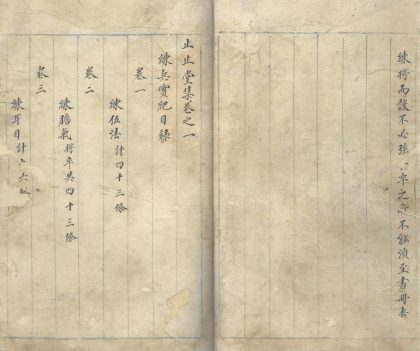 練將而後不必強卒之不能須至書冊者
止止堂集卷之一
練兵實紀目錄
卷一
練伍法計四十三條
卷二
練膽氣將卒共四十三條
卷三
練耳目計十六